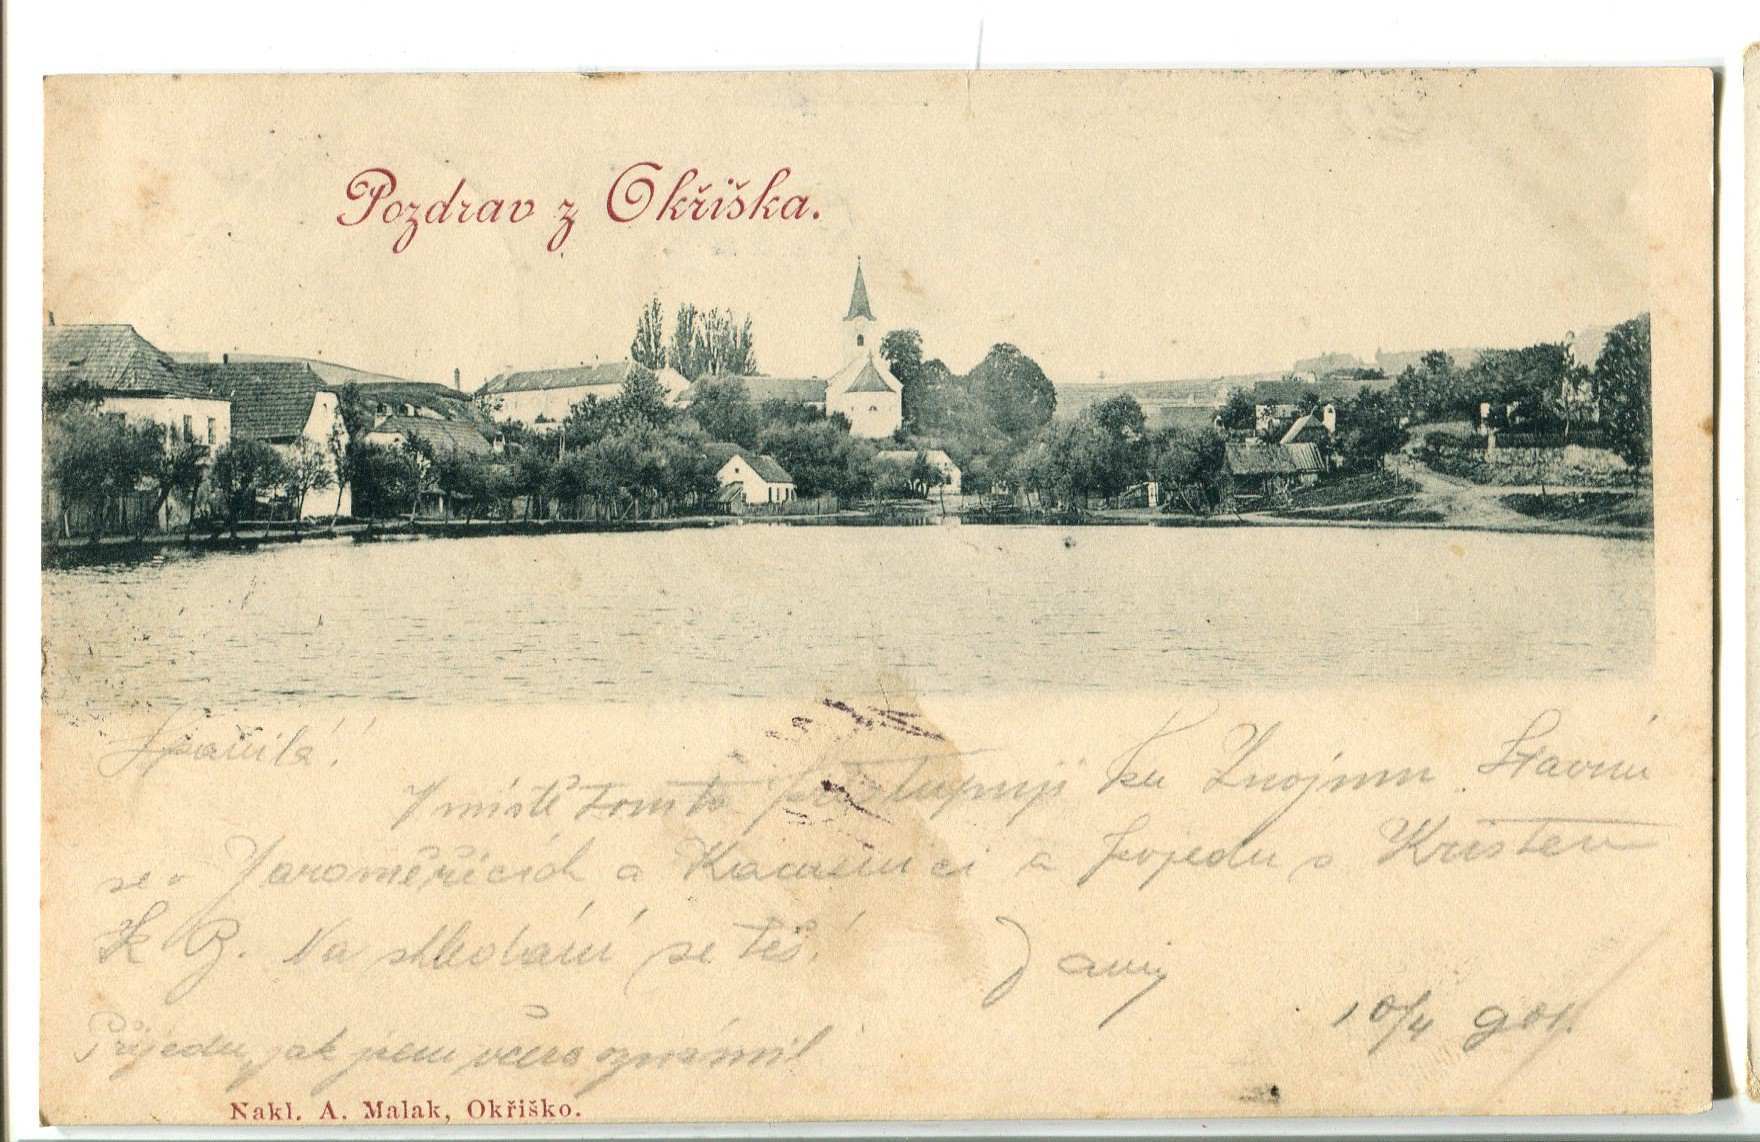 Pozdrav z Okřiška.
Spanilá!
V místě tomto přestupuji ku Znojmu. Stavím
se v Jaroměřicích a Kamenici a pojedu s Kristen
Na shledání se těš!
10/4 901.
Přijedu, jak jsem včera oznámil!
Nakl. A. Malak, Okřiško.